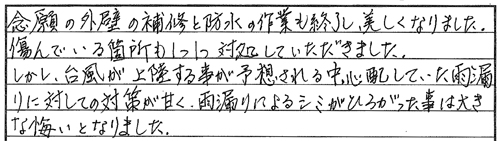 念願の外壁の補修と防水の作業も終了し美しくなりました。
傷んでいる箇所も1つ1つ対処していただきました。
しかし、台風が上陸する事が予想される中心配していた雨漏
りに対しての対策が甘く、雨漏りによるシミがひろがった事は大き
な悔いとなりました。